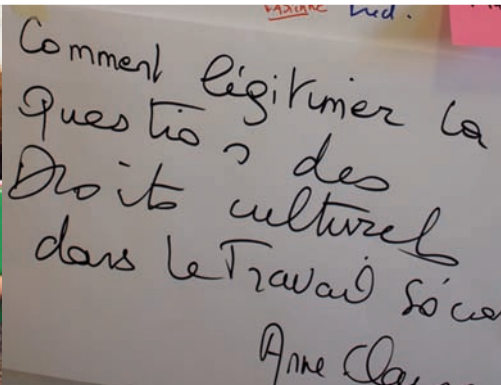 Lud.
Comment légitimer la
question des
Droits culturels
dans le Travail
Anne